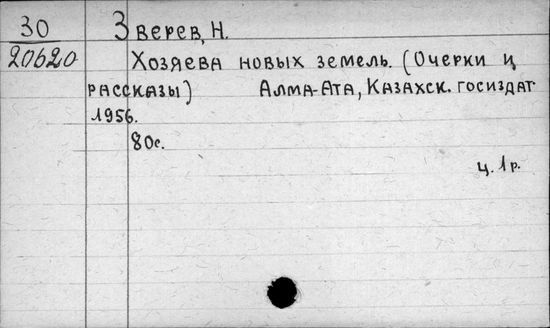 30 Зверев, Н.
20620 Хозяева новых земель. (Очерки и
рассказы) Алма-Ата, Казахск. госиздат
1956.
80с.
ц. 1р.